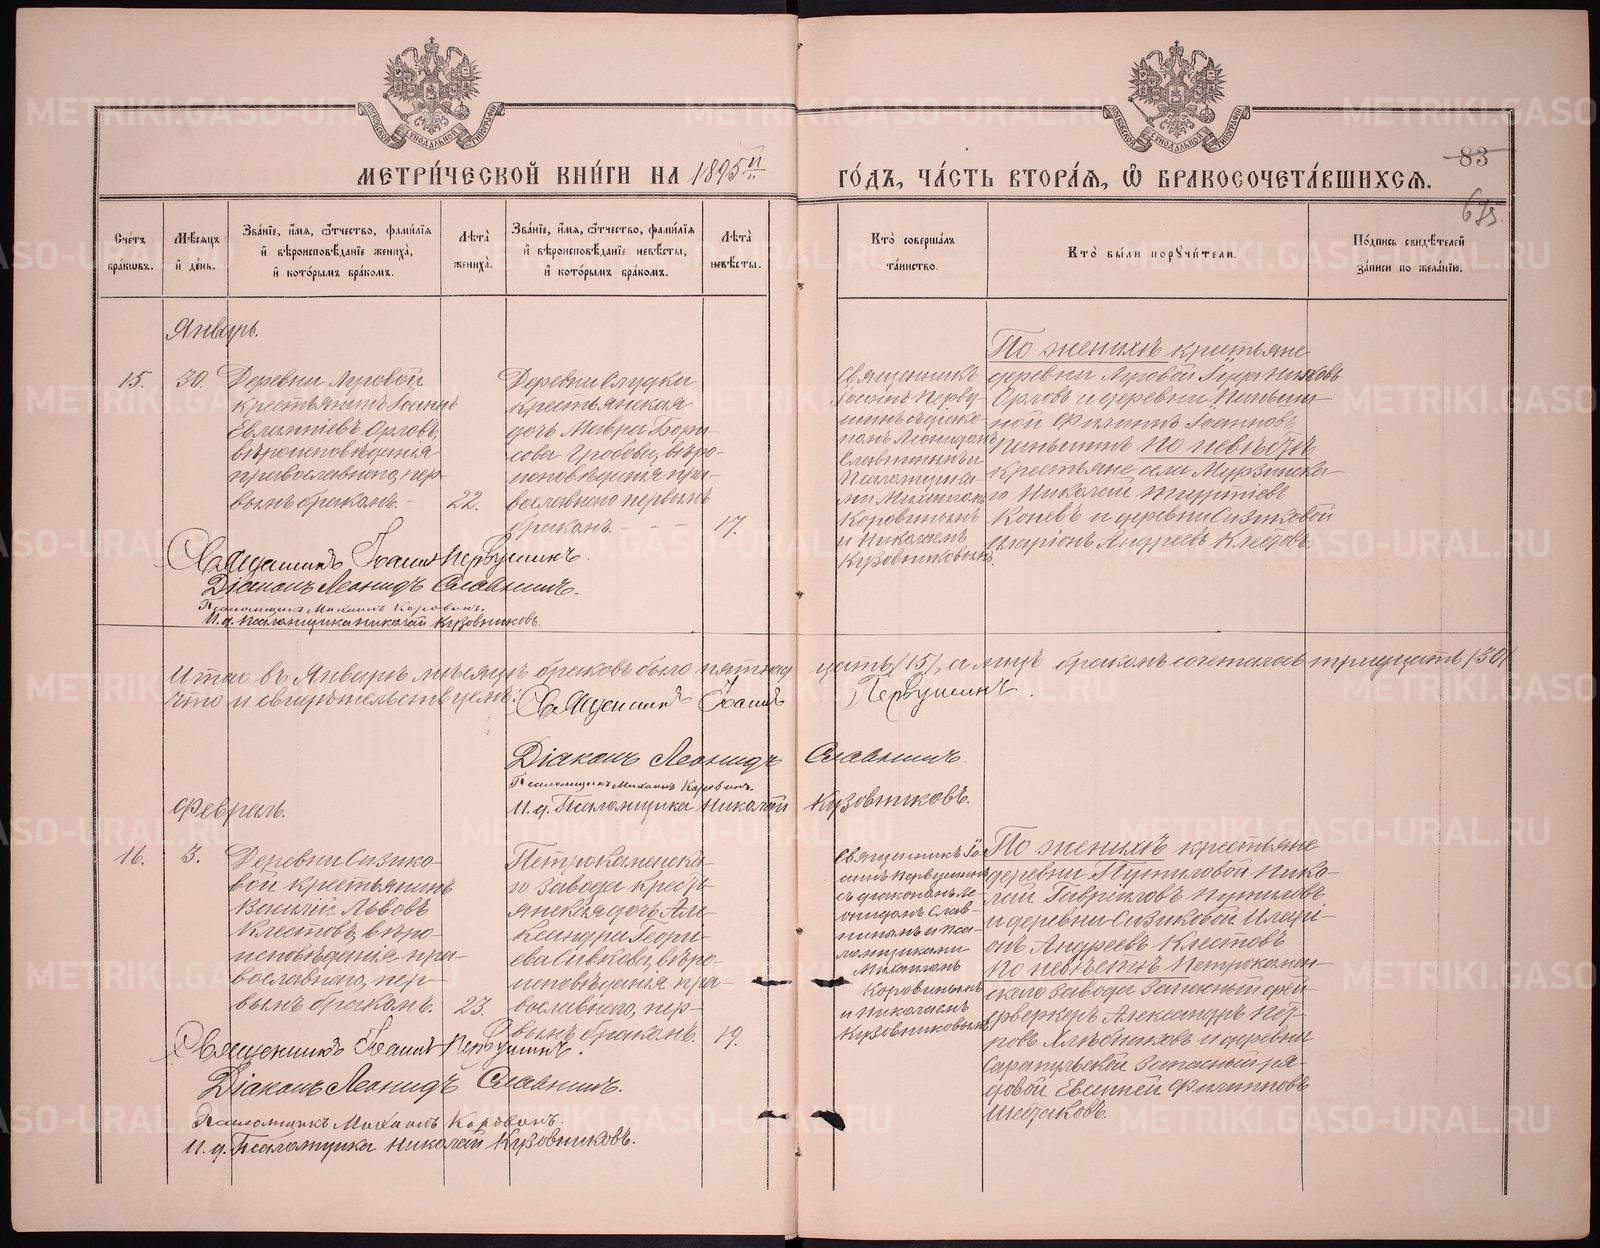 МОСКОВСКОЙ СУНОДАЛЬНОЙ ТИПОГРАФІИ
МОСКОВСКОЙ СУНОДАЛЬНОЙ ТИПОГРАФІИ
МЕТРИ́ЧЕСКОЙ КНИ́ГИ НА 1895й ГО́ДЪ, ЧА́СТЬ ВТОРА́Я, Ѡ БРАКОСОЧЕТА́ВШИХСЯ.
83
Сче́тъ бра́кѡвъ.
Мѣ́сяцъ и҆ де́нь.
Зва́нїе, и҆́мя, ѻ҆́тчество, фами́лїя и҆ вѣроисповѣ́данїе жениха̀, и҆ кото́рымъ бра́комъ.
Лѣ́та жениха̀.
Зва́нїе, и҆́мя, ѻ҆́тчество, фами́лїя и҆ вѣроисповѣ́данїе невѣ́сты, и҆ кото́рымъ бра́комъ.
Лѣ́та невѣ́сты.
Кто̀ соверша́лъ та́инство.
Кто̀ бы́ли порꙋчи́тели.
По́дпись свидѣ́телей за́писи по жела́нїю.
Январь.
15.
30.
Деревни Луговой
крестьянинъ Іоаннъ
Евлампіевъ Орловъ,
вѣроисповѣданія
православнаго, пер-
вымъ бракомъ.-
22.
Деревни Слудки
крестьянская
дочь Мавра Бори-
сова Гробова, вѣро-
исповѣданія пра-
вославнаго первымъ
бракомъ.
17.
Священникъ
Іоаннъ Перву-
шинъ съ діако-
номъ Леонидомъ
Славнинымъ и
Псаломщика-
ми Михаиломъ
Коровинымъ
и Николаемъ
Кузовниковымъ.
По женихѣ крестьяне
деревни Луговой
Орловъ и деревни
Филиппъ Іоанновъ
по невѣстѣ
крестьяне села Мурзинска-
го Николай
Коневъ и деревни Сизиковой
Иларіонъ Андреевъ Клестовъ.
Священникъ Іоаннъ Первушинъ.
Діаконъ Леонидъ Славнинъ.
Псаломщикъ Михаилъ Коровинъ.
И. д. Псаломщика Николай Кузовниковъ.
Итого въ Январѣ мѣсяцѣ браковъ было пятнад цать /15/, а лицъ бракомъ сочеталось тридцать /30/
что и свидѣтельствуемъ: Священникъ Іоаннъ Первушинъ.
Діаконъ Леонидъ Славнинъ.
Псаломщикъ Михаилъ Коровинъ.
И. д. Псаломщика Николай Кузовниковъ.
Февраль.
16.
3.
Деревни Сизико-
вой крестьянинъ
Василій Львовъ
Клестовъ, вѣро-
исповѣданія пра-
вославнаго, пер-
вымъ бракомъ.
23.
Петрокаменска-
го Завода кресть-
янская дочь Але-
ксандра Георгі-
ева Сивкова, вѣро-
исповѣданія пра-
вославнаго, пер-
вымъ бракомъ.
19.
Священникъ Іо-
аннъ Первушинъ
съ діакономъ Ле-
онидомъ Слав-
нинымъ и Пса-
ломщиками
Михаиломъ
Коровинымъ
и Николаемъ
Кузовниковымъ.
По женихѣ крестьяне
деревни Путиловой Нико-
лай Гавріиловъ Путиловъ
и деревни Сизиковой Илари-
онъ Андреевъ Клестовъ
По невѣстѣ Петрокамен-
скаго Завода Запасный фей-
ерверкеръ Александръ Пет-
ровъ Хлѣбниковъ и деревни
Сарапульской Запасный ря-
довой Евгеній Филипповъ
Шестаковъ.
Священникъ Іоаннъ Первушинъ.
Діаконъ Леонидъ Славнинъ.
Псаломщикъ Михаилъ Коровинъ.
И. д. Псаломщика Николай Кузовниковъ.
METRIKI.GASO-URAL.RU